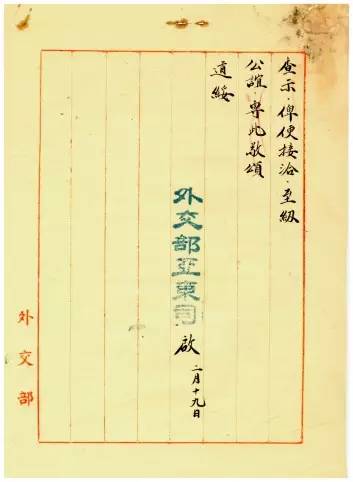 查示,俾便接洽,至紉
公誼,專此敬頌
道綏
外交部亞東司 啟
二月十九日
外交部